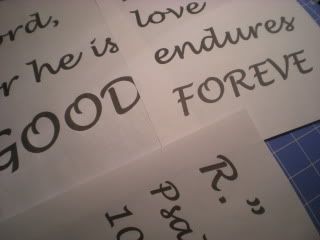 ord,
r he is
GOOD
love
endures
FOREVE
R.”
Psa
10